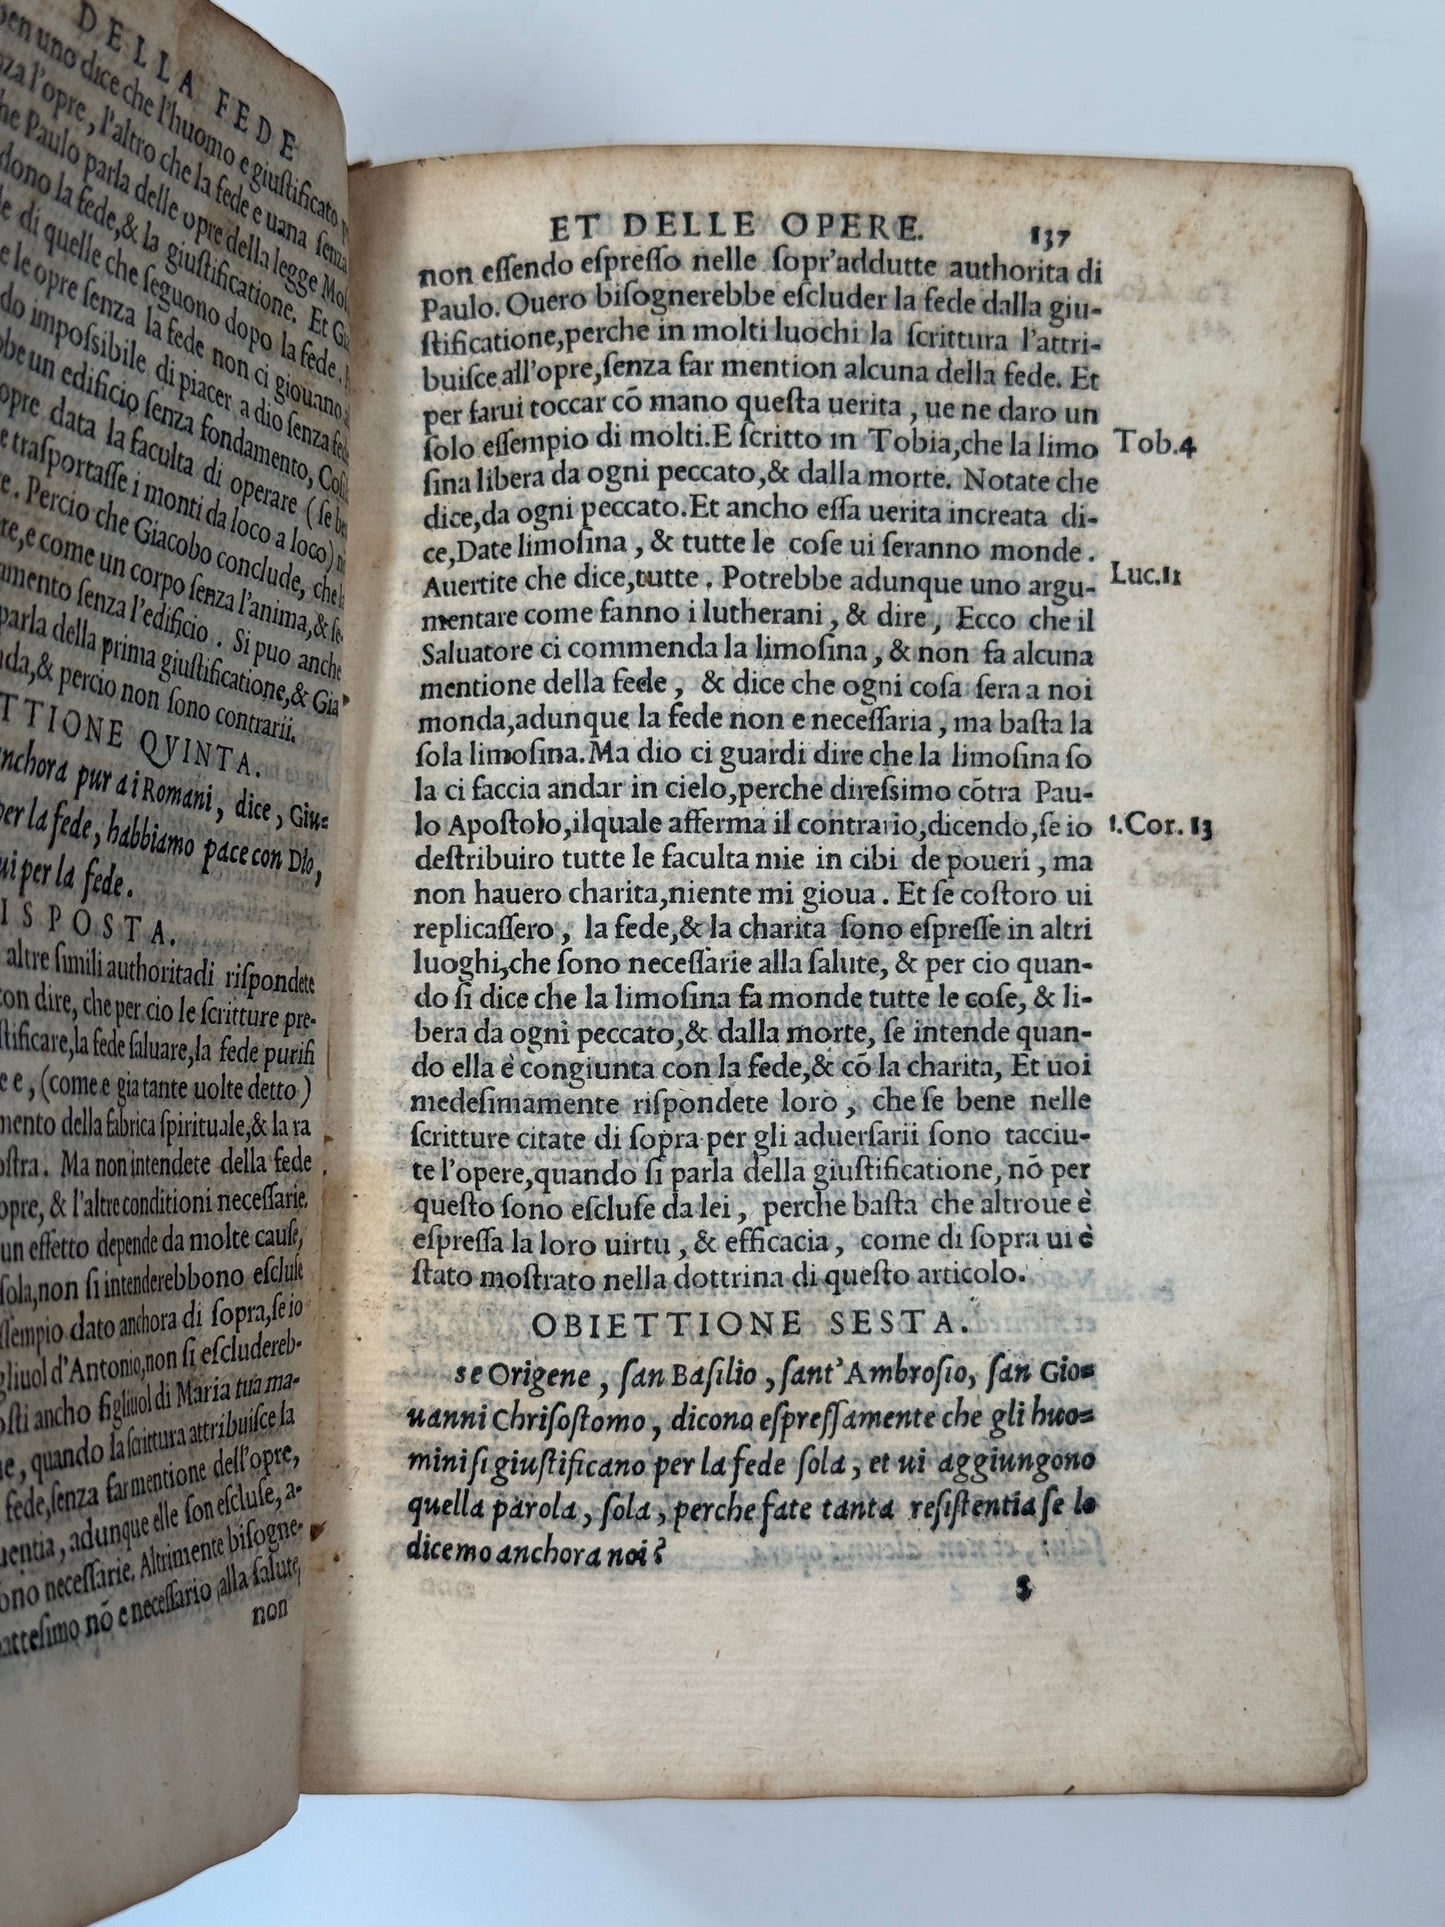 DELLA FEDE
uno dice che l'huomo e giuſtificato
l'opre, l'altro che la fede e uana ſenza
Paulo parla delle opre della legge
la fede,& la giuſtificatione. Et
di quelle che ſeguono dopo la fede.
le opre ſenza la fede non ci giouano
impoſsibile di piacer a dio ſenza fede
un edificio ſenza fondamento,
opre data la faculta di operare (ſe
traſportaſſe i monti da loco a loco)
Percio che Giacobo conclude, che
e come un corpo ſenza l'anima,&
ſenza l'edificio. Si puo anche
parla della prima giuſtificatione,& Gia
& percio non ſono contrarii.
QVINTA.
pur ai Romani, dice, Giu=
per la fede, habbiamo pace con Dio,
per la fede.
altre ſimili authorita di riſpondete
dire, che per cio le ſcritture pre-
la fede ſaluare,la fede purifi
e, (come e gia tante uolte detto)
della fabrica ſpirituale,& la ra
Ma non intendete della fede
opre, & l'altre conditioni neceſſarie.
un effetto depende da molte cauſe,
ſola,non ſi intenderebbono eſcluſe
dato anchora di ſopra,ſe io
d'Antonio,non ſi eſcludereb-
ancho figliuol di Maria tua ma-
quando la ſcrittura attribuiſce la
fede,ſenza far mentione dell'opre,
adunque elle ſon eſcluſe, a-
neceſſarie. Altrimente biſogne-
nō e neceſſario alla ſalute,
non
ET DELLE OPERE. 137
non eſſendo eſpreſſo nelle ſopr'addutte authorita di
Paulo. Ouero biſognerebbe eſcluder la fede dalla giu-
ſtificatione,perche in molti luochi la ſcrittura l'attri-
buiſce all'opre,ſenza far mention alcuna della fede. Et
per farui toccar cō mano queſta uerita, ue ne daro un
ſolo eſſempio di molti.E ſcritto in Tobia,che la limo
ſina libera da ogni peccato,& dalla morte. Notate che
dice,da ogni peccato.Et ancho eſſa uerita increata di-
ce,Date limoſina, & tutte le coſe ui ſeranno monde.
Auertite che dice,tutte. Potrebbe adunque uno argu-
mentare come fanno i lutherani, & dire, Ecco che il
Saluatore ci commenda la limoſina, & non fa alcuna
mentione della fede, & dice che ogni coſa ſera a noi
monda,adunque la fede non e neceſſaria, ma baſta la
ſola limoſina.Ma dio ci guardi dire che la limoſina ſo
la ci faccia andar in cielo,perche direſsimo cōtra Pau-
lo Apoſtolo,ilquale afferma il contrario,dicendo,ſe io
deſtribuiro tutte le faculta mie in cibi de poueri, ma
non hauero charita,niente mi gioua. Et ſe coſtoro ui
replicaſſero, la fede,& la charita ſono eſpreſſe in altri
luoghi,che ſono neceſſarie alla ſalute, & per cio quan-
do ſi dice che la limoſina fa monde tutte le coſe, & li-
bera da ogni peccato,& dalla morte, ſe intende quan-
do ella è congiunta con la fede,& cō la charita, Et uoi
medeſimamente riſpondete loro, che ſe bene nelle
ſcritture citate di ſopra per gli aduerſarii ſono tacciu-
te l'opere,quando ſi parla della giuſtificatione, nō per
queſto ſono eſcluſe da lei, perche baſta che altroue è
eſpreſſa la loro uirtu, & efficacia, come di ſopra ui è
ſtato moſtrato nella dottrina di queſto articolo.
Tob.4
Luc.11
1.Cor. 13
OBIETTIONE SESTA.
se Origene, ſan Baſilio, ſant' Ambroſio, ſan Gio=
uanni Chriſoſtomo, dicono eſpreſſamente che gli huo=
mini ſi giuſtificano per la fede ſola, et ui aggiungono
quella parola, ſola, perche fate tanta reſiſtentia ſe lo
dicemo anchora noi?
S